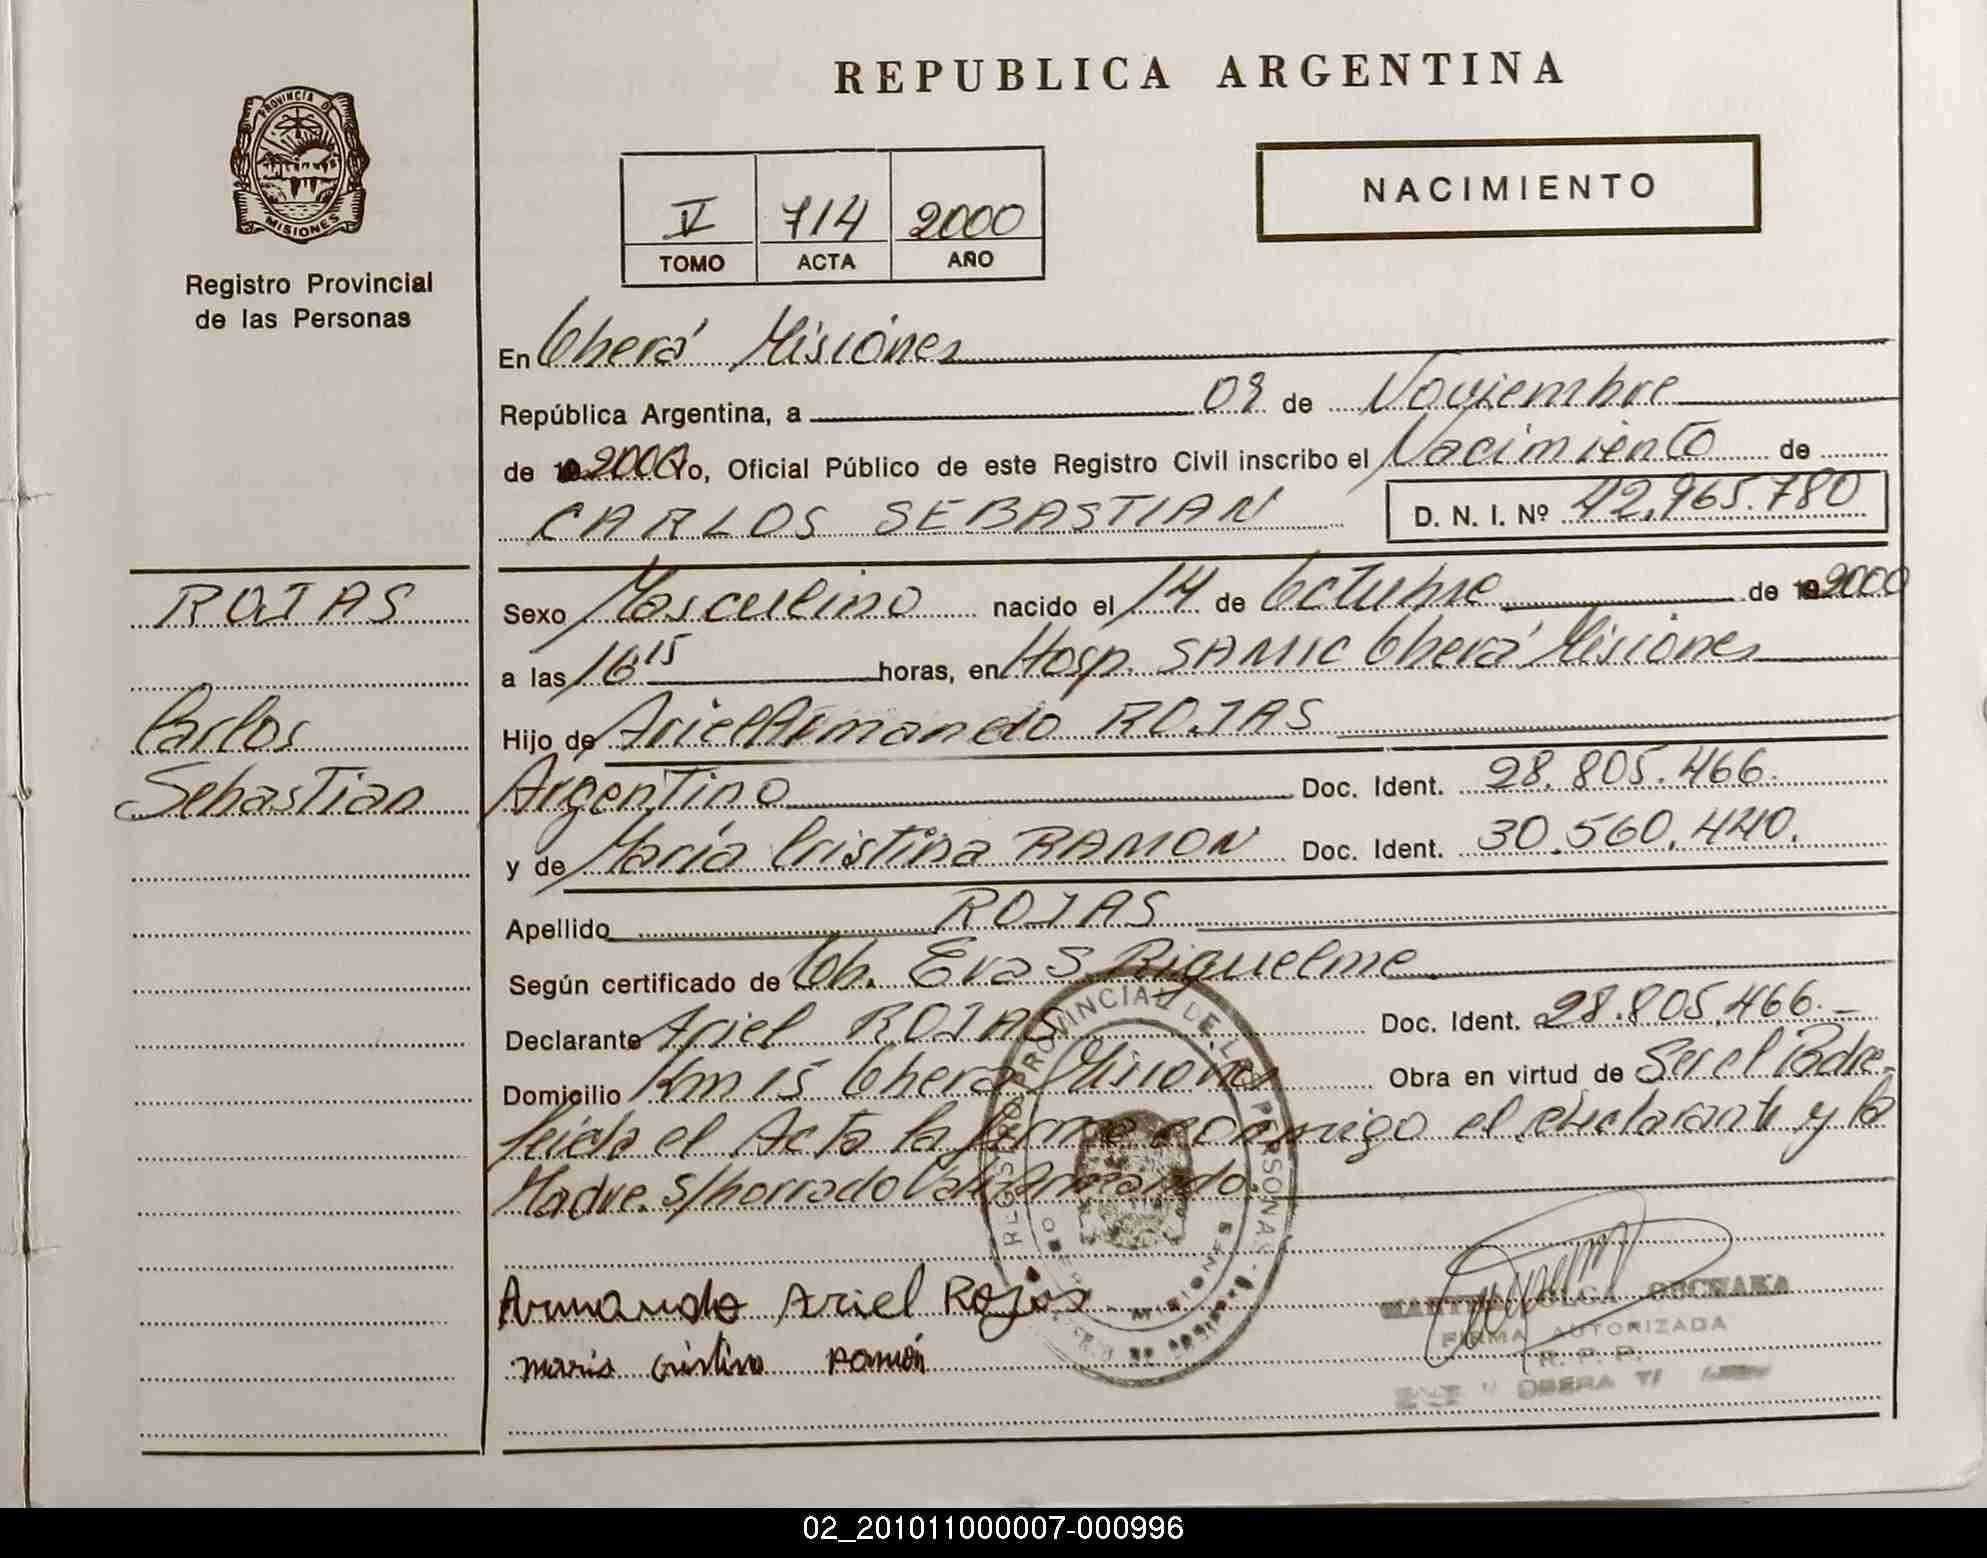 REPUBLICA ARGENTINA
PROVINCIA DE
MISIONES
Registro Provincial
de las Personas
V 714 2000
TOMO ACTA AÑO
NACIMIENTO
En Oberá Misiones
República Argentina, a 09 de Noviembre
de 2000 Yo, Oficial Público de este Registro Civil inscribo el Nacimiento de
CARLOS SEBASTIAN D. N. I. Nº 42.965.780
ROJAS
Carlos
Sebastian
Sexo Masculino nacido el 14 de Octubre de 2000
a las 16 15 horas, en Hosp. SAMIC Oberá Misiones
Hijo de Ariel Armando ROJAS
Argentino Doc. Ident. 28.805.466.
y de María Cristina RAMON Doc. Ident. 30.560.440.
Apellido ROJAS
Según certificado de Ob. Eva S. Riquelme
Declarante Ariel ROJAS Doc. Ident. 28.805.466.-
Domicilio Km 15 Oberá Misiones Obra en virtud de Ser el Padre.
leída el Acta la firma conmigo el declarante y la
Madre. S/borrado Vale Armando.
REGISTRO PROVINCIAL DE LAS PERSONAS
MISIONES
Armando Ariel Rojas
Maria Cristina Ramón
OLGA
FIRMA AUTORIZADA
R. P. P.
OBERA
02_201011000007-000996